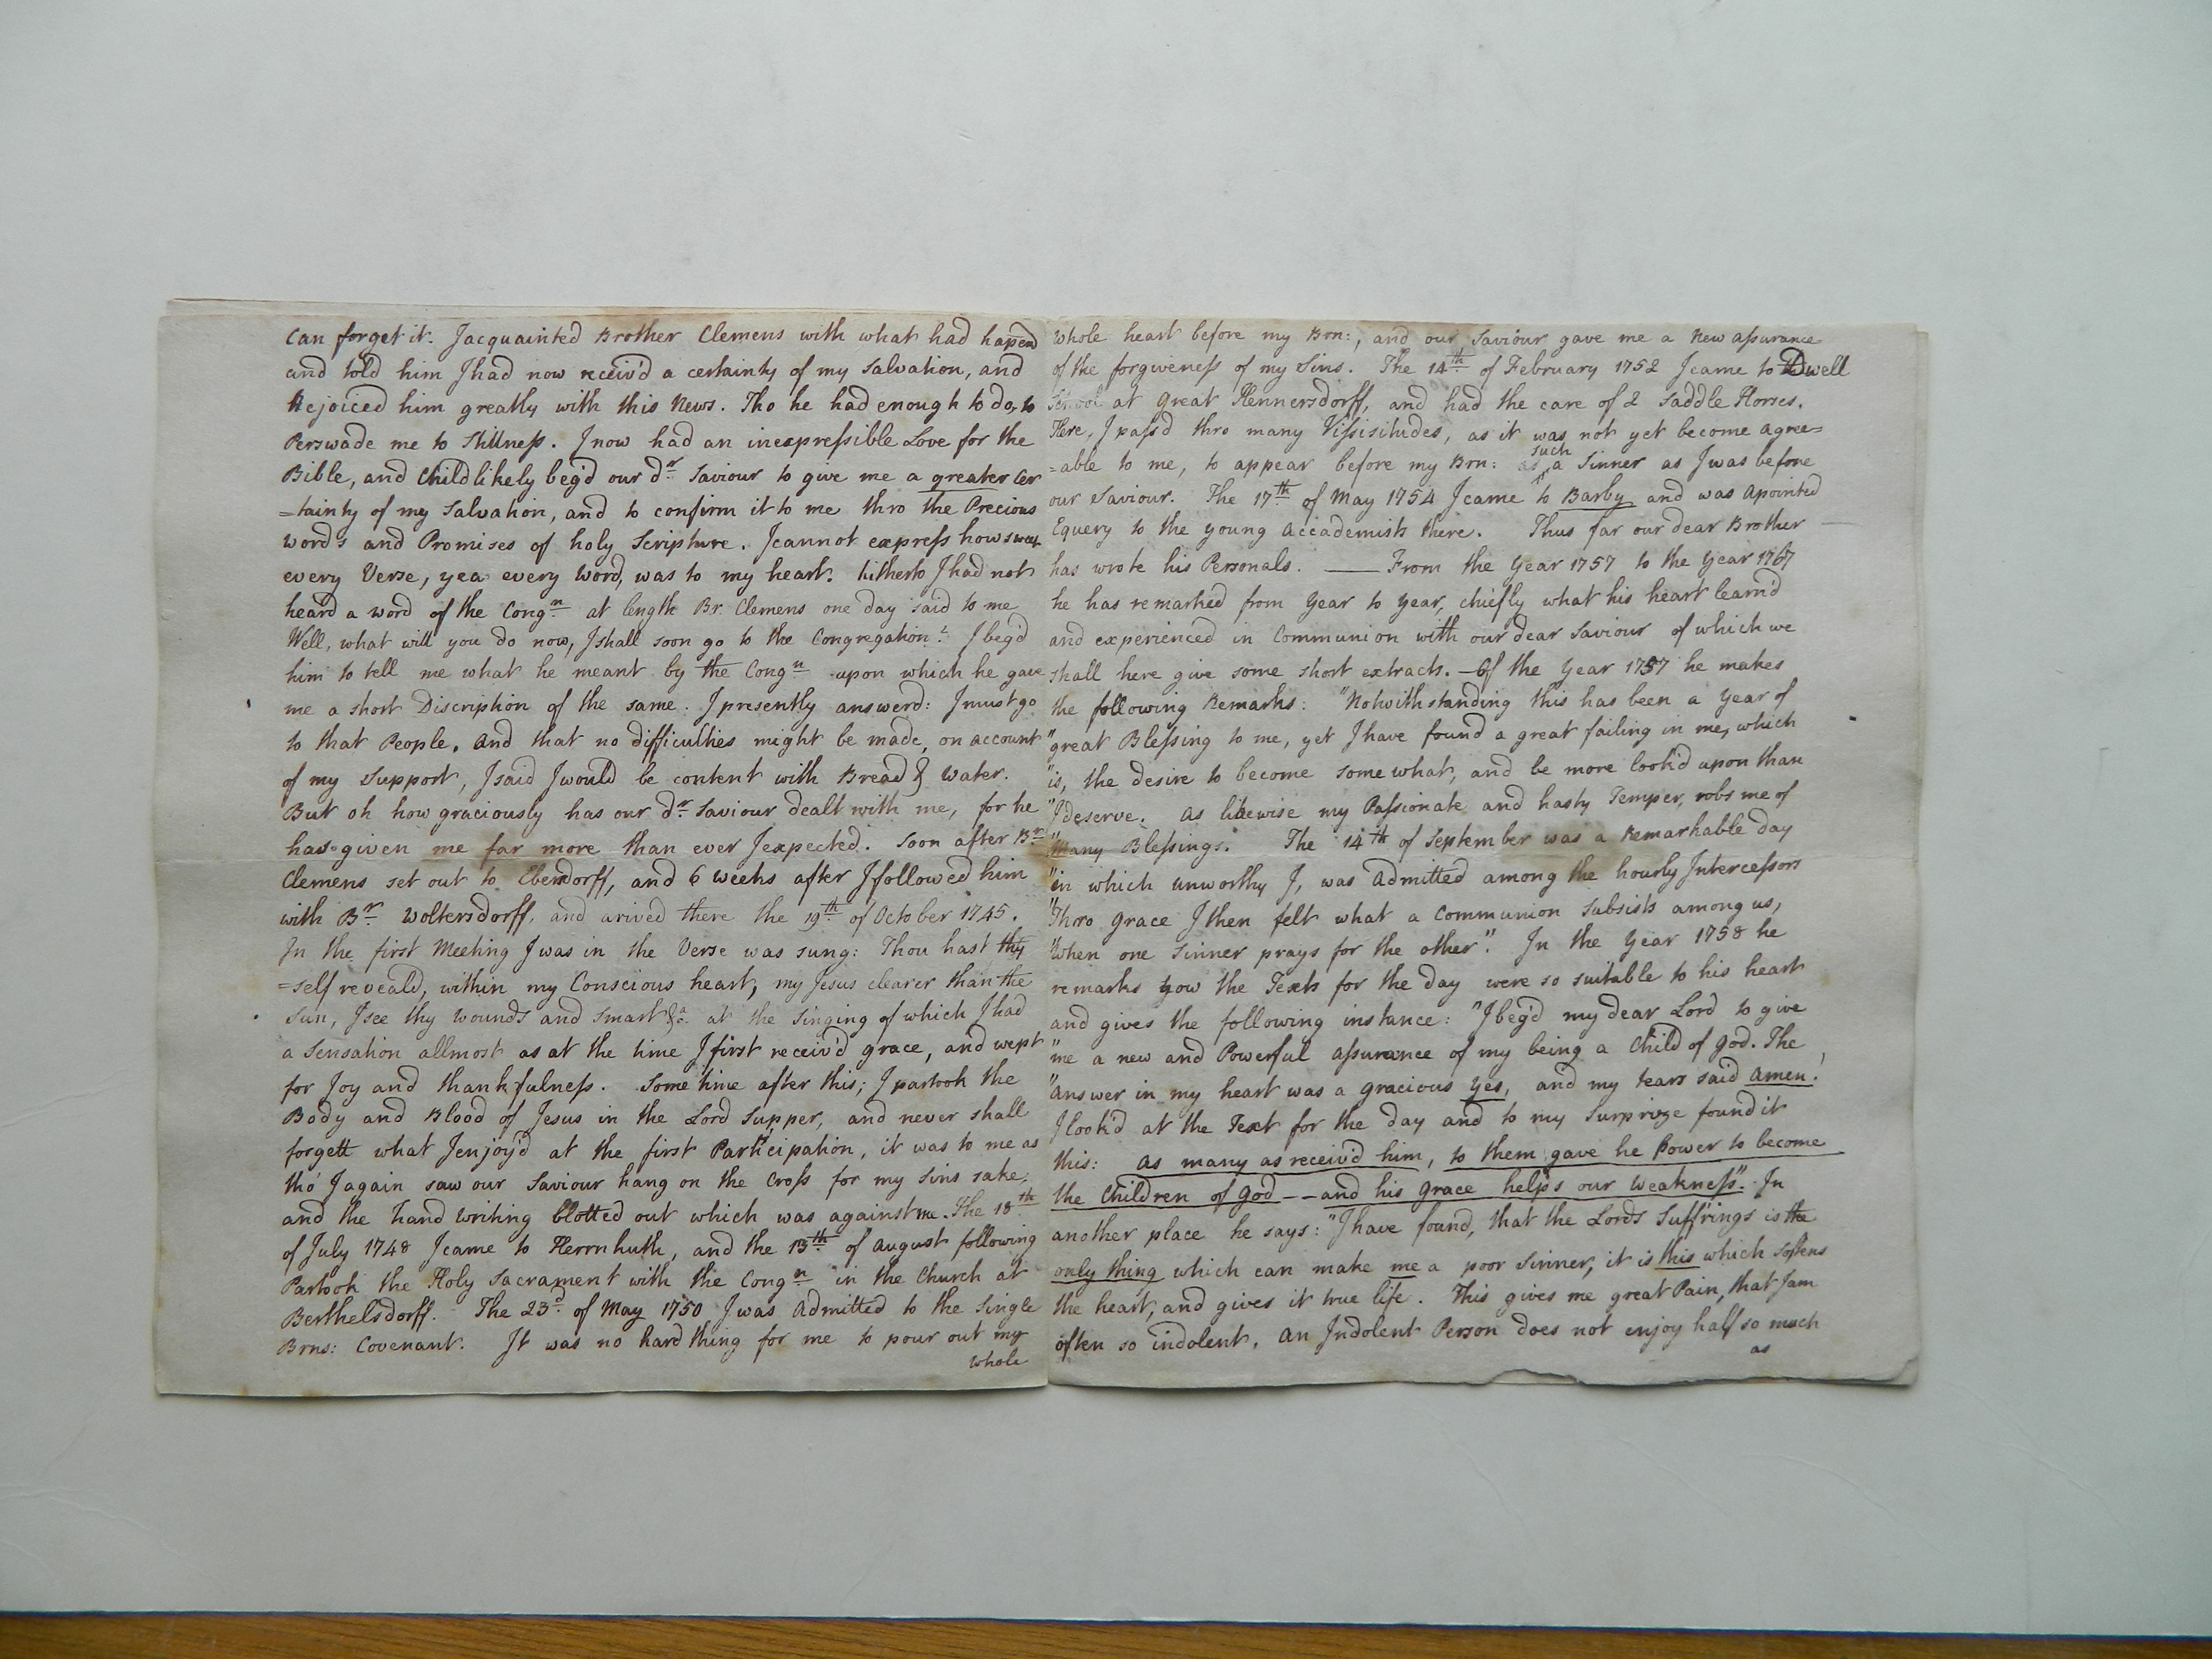 Can forget it. I acquainted Brother Clemens with what had hapend
and told him I had now receiv'd a certainty of my Salvation, and
Rejoiced him greatly with this News. Tho he had enough to do, to
Perswade me to Stillness. I now had an inexpressible Love for the
Bible, and Childlikely beg'd our dr Saviour to give me a greater Cer
=tainty of my Salvation, and to confirm it to me thro the Precious
words and Promises of holy Scripture. I cannot express how sweet
every Verse, yea every Word, was to my heart. hitherto I had not
heard a word of the Congn at length Br. Clemens one day said to me
Well, what will you do now, I shall soon go to the Congregation? I beg'd
him to tell me what he meant by the Congn upon which he gave
me a short Discription of the same. I presently answerd: I must go
to that People. And that no difficulties might be made, on account
of my Support, I said I would be content with Bread & Water.
But oh how graciously has our dr Saviour dealt with me, for he
has given me far more than ever I expected. Soon after Br
Clemens set out to Ebersdorff, and 6 weeks after I followed him
with Br Woltersdorff, and arived there the 19th of October 1745.
In the first Meeting I was in the Verse was sung: Thou hast thy
=self reveald, within my Conscious heart, my Jesus clearer than the
Sun, I see thy Wounds and Smart &c. at the Singing of which I had
a Sensation allmost as at the time I first receiv'd grace, and wept
for Joy and thankfulness. Some time after this; I partook the
Body and Blood of Jesus in the Lord Supper, and never shall
forgett what I enjoy'd at the first Participation, it was to me as
tho' I again saw our Saviour hang on the Cross for my Sins sake,
and the hand Writing blotted out which was against me. The 18th
of July 1748 I came to Herrnhuth, and the 13th of August following
Partook the Holy Sacrament with the Congn in the Church at
Berthelsdorff. The 23d of May 1750 I was Admitted to the Single
Brns: Covenant. It was no hard thing for me to pour out my
whole
Whole heart before my Brn:, and our Saviour gave me a New assurance
of the forgiveness of my Sins. The 14th of February 1752 I came to Dwell
School at great Hennersdorff, and had the care of 2 Saddle Horses.
Here, I pass'd thro many Vissisitudes, as it was not yet become agree=
=able to me, to appear before my Brn: as such a Sinner as I was before
our Saviour. The 17th of May 1754 I came to Barby and was apointed
Equery to the young Accademists there. Thus far our dear Brother
has wrote his Personals. — From the Year 1757 to the Year 1767
he has remarked from Year to Year, chiefly what his heart learn'd
and experienced in Communion with our dear Saviour of which we
shall here give some short extracts. — Of the Year 1757 he makes
the following Remarks: "Notwithstanding this has been a Year of
"great Blessing to me, yet I have found a great failing in me, which
"is, the desire to become somewhat, and be more look'd upon than
"I deserve. As likewise my Passionate and hasty Temper, robs me of
"Many Blessings. The 14th of September was a Remarkable day
"in which unworthy I, was Admitted among the hourly Intercessors
"Thro Grace I then felt what a Communion Subsists among us,
"When one Sinner prays for the other". In the Year 1758 he
remarks how the Texts for the day were so suitable to his heart
and gives the following instance: "I beg'd my dear Lord to give
"me a new and Powerful assurance of my being a Child of God. The
"answer in my heart was a gracious Yes, and my tears said Amen!
I look'd at the Text for the day and to my Surprize found it
this: As many as receiv'd him, to them gave he Power to become
the Children of God -- and his grace helps our Weakness". In
another place he says: "I have found, that the Lords Suff'rings is the
only thing which can make me a poor Sinner, it is this which softens
the heart, and gives it true life. This gives me great Pain, that I am
often so indolent. An Indolent Person does not enjoy half so much
as